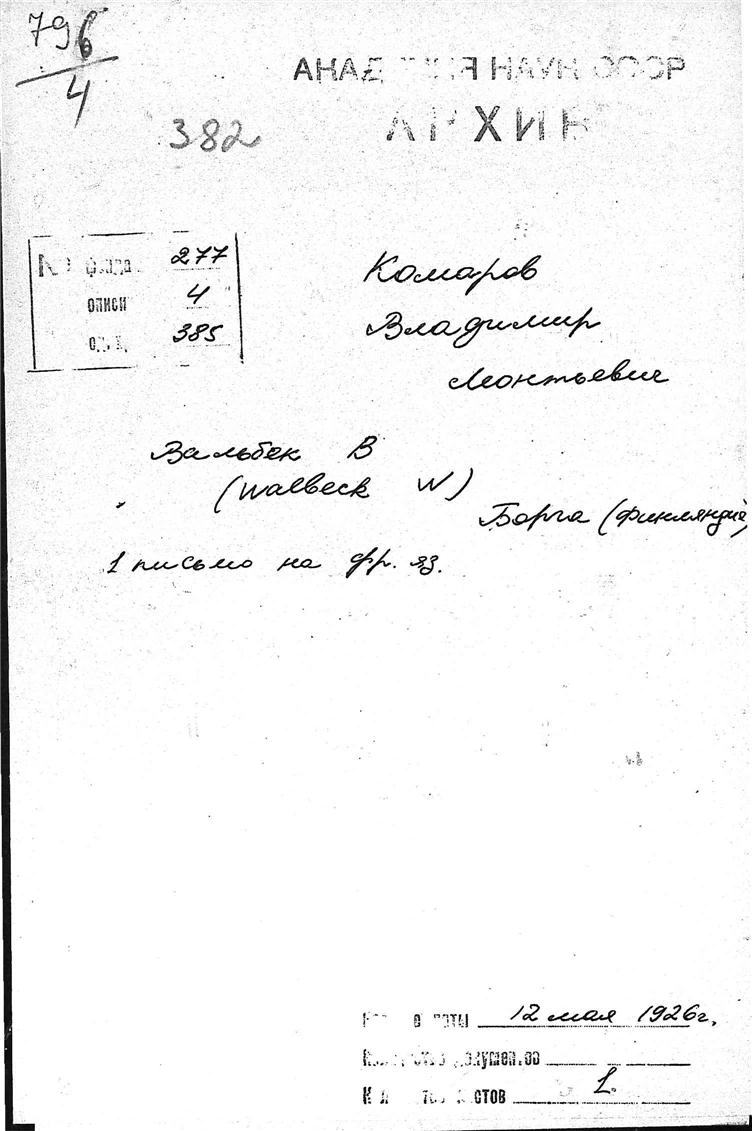 79б
4
АКАДЕМИЯ НАУК СССР
АРХИВ
382
№ фонда 277
описи 4
ед. хр. 385
Комаров
Владимир
Леонтьевич
Вальбек В
(Walbeck W)
Борга (Финляндия)
1 письмо на фр. яз.
Крайние даты 12 мая 1926г.
Количество документов
Количество листов 1.